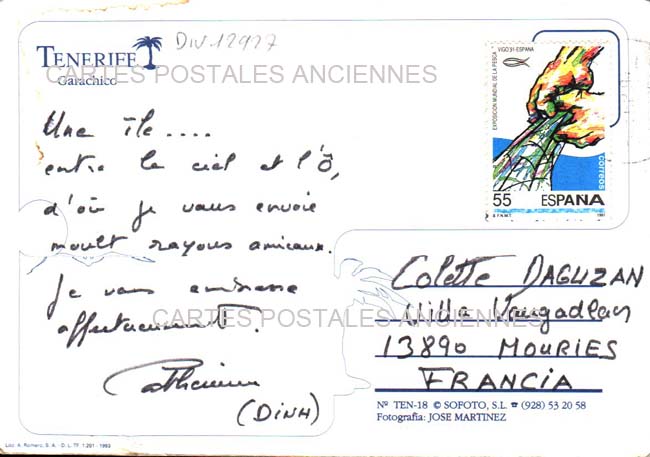 Div 12927
TENERIFE
Garachico
CARTES POSTALES ANCIENNES
Une île....
entre le ciel et l'Ô,
d'où je vous envoie
moult rayons amicaux.
Je vous embrasse
affectueusement.
CARTES POSTALES ANCIENNES
(DINH)
EXPOSICION MUNDIAL DE LA PESCA
VIGO 91-ESPAÑA
correos
55 ESPAÑA
F.N.M.T. 1991
Colette DAGUZAN
Villa
13890 MOURIES
FRANCIA
Nº TEN-18 © SOFOTO, S.L. ☎ (928) 53 20 58
Fotografía: JOSE MARTINEZ
Lito: A. Romero, S. A. - D. L. TF. 1.201 - 1993